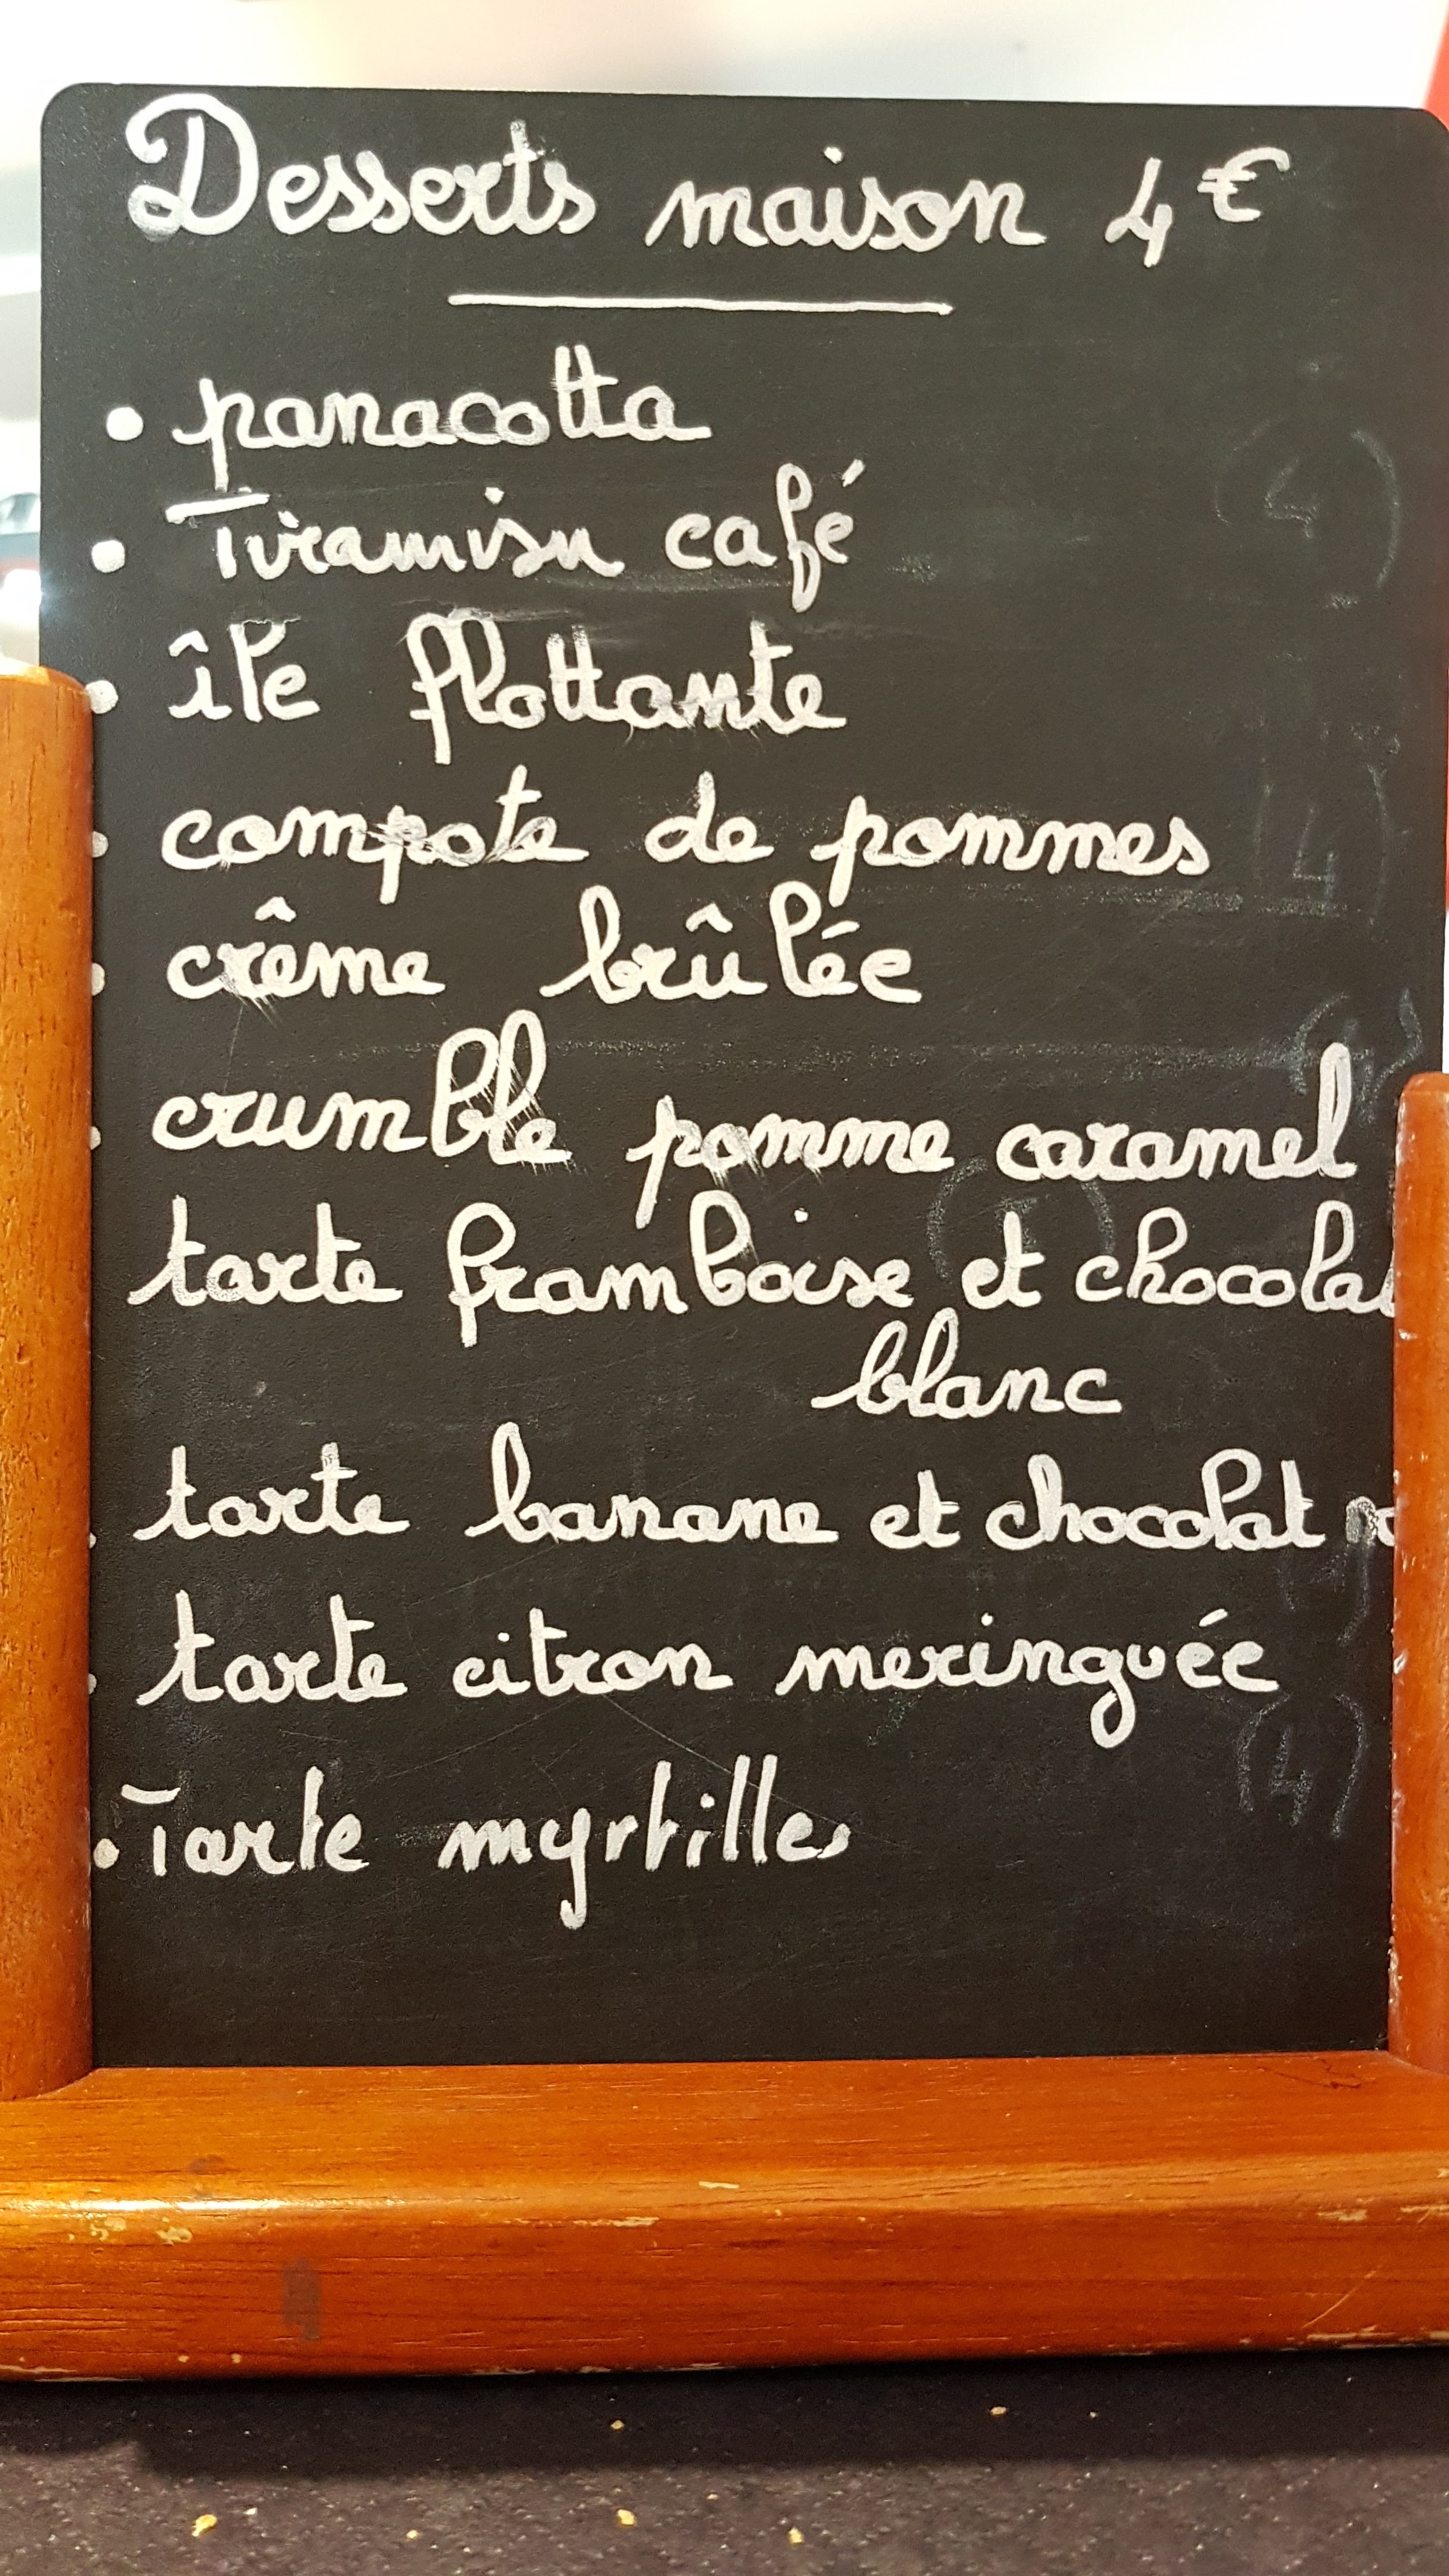 Desserts maison 4€
• panacotta
• Tiramisu café
• île flottante
• compote de pommes
• crême brûlée
• crumble pomme caramel
tarte framboise et chocolat
blanc
• tarte banane et chocolat
• tarte citron meringuée
• Tarte myrtilles